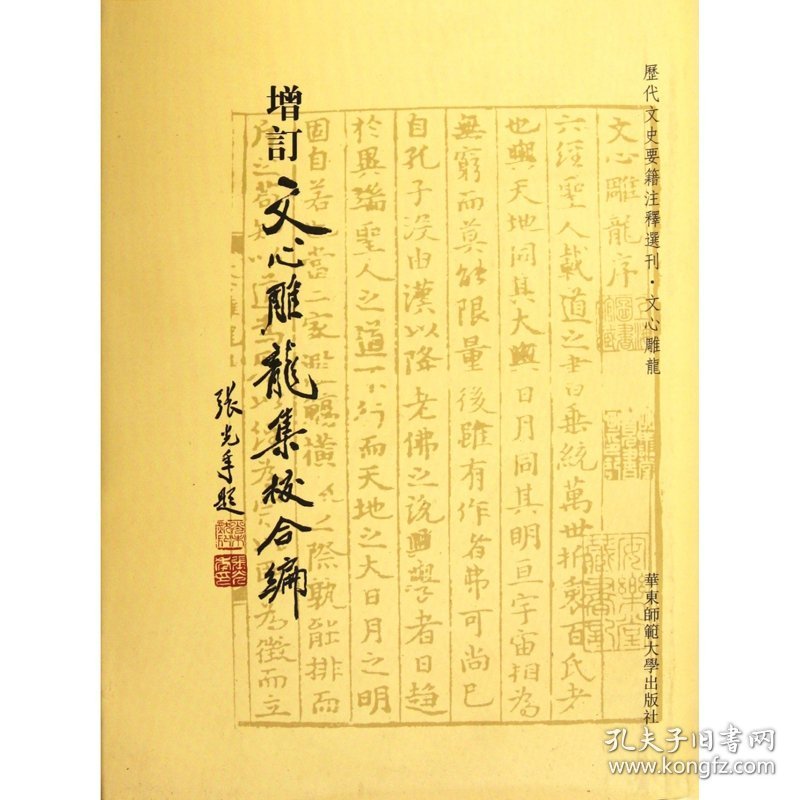 歷代文史要籍注釋選刊·文心雕龍
華東師範大學出版社
增訂文心雕龍集校合編
張光年題
文心雕龍序
六經聖人載道之書日垂統萬世折衷百氏者
也與天地同其大與日月同其明亘宇宙相為
無窮而莫能限量後雖有作者弗可尚已
自孔子沒由漢以降老佛之說興學者日趨
於異端聖人之道不行而天地之大日月之明
固自若也當二家濫觴橫流之際孰能排而
為徵而立
孔夫子旧书网
kongfz.com